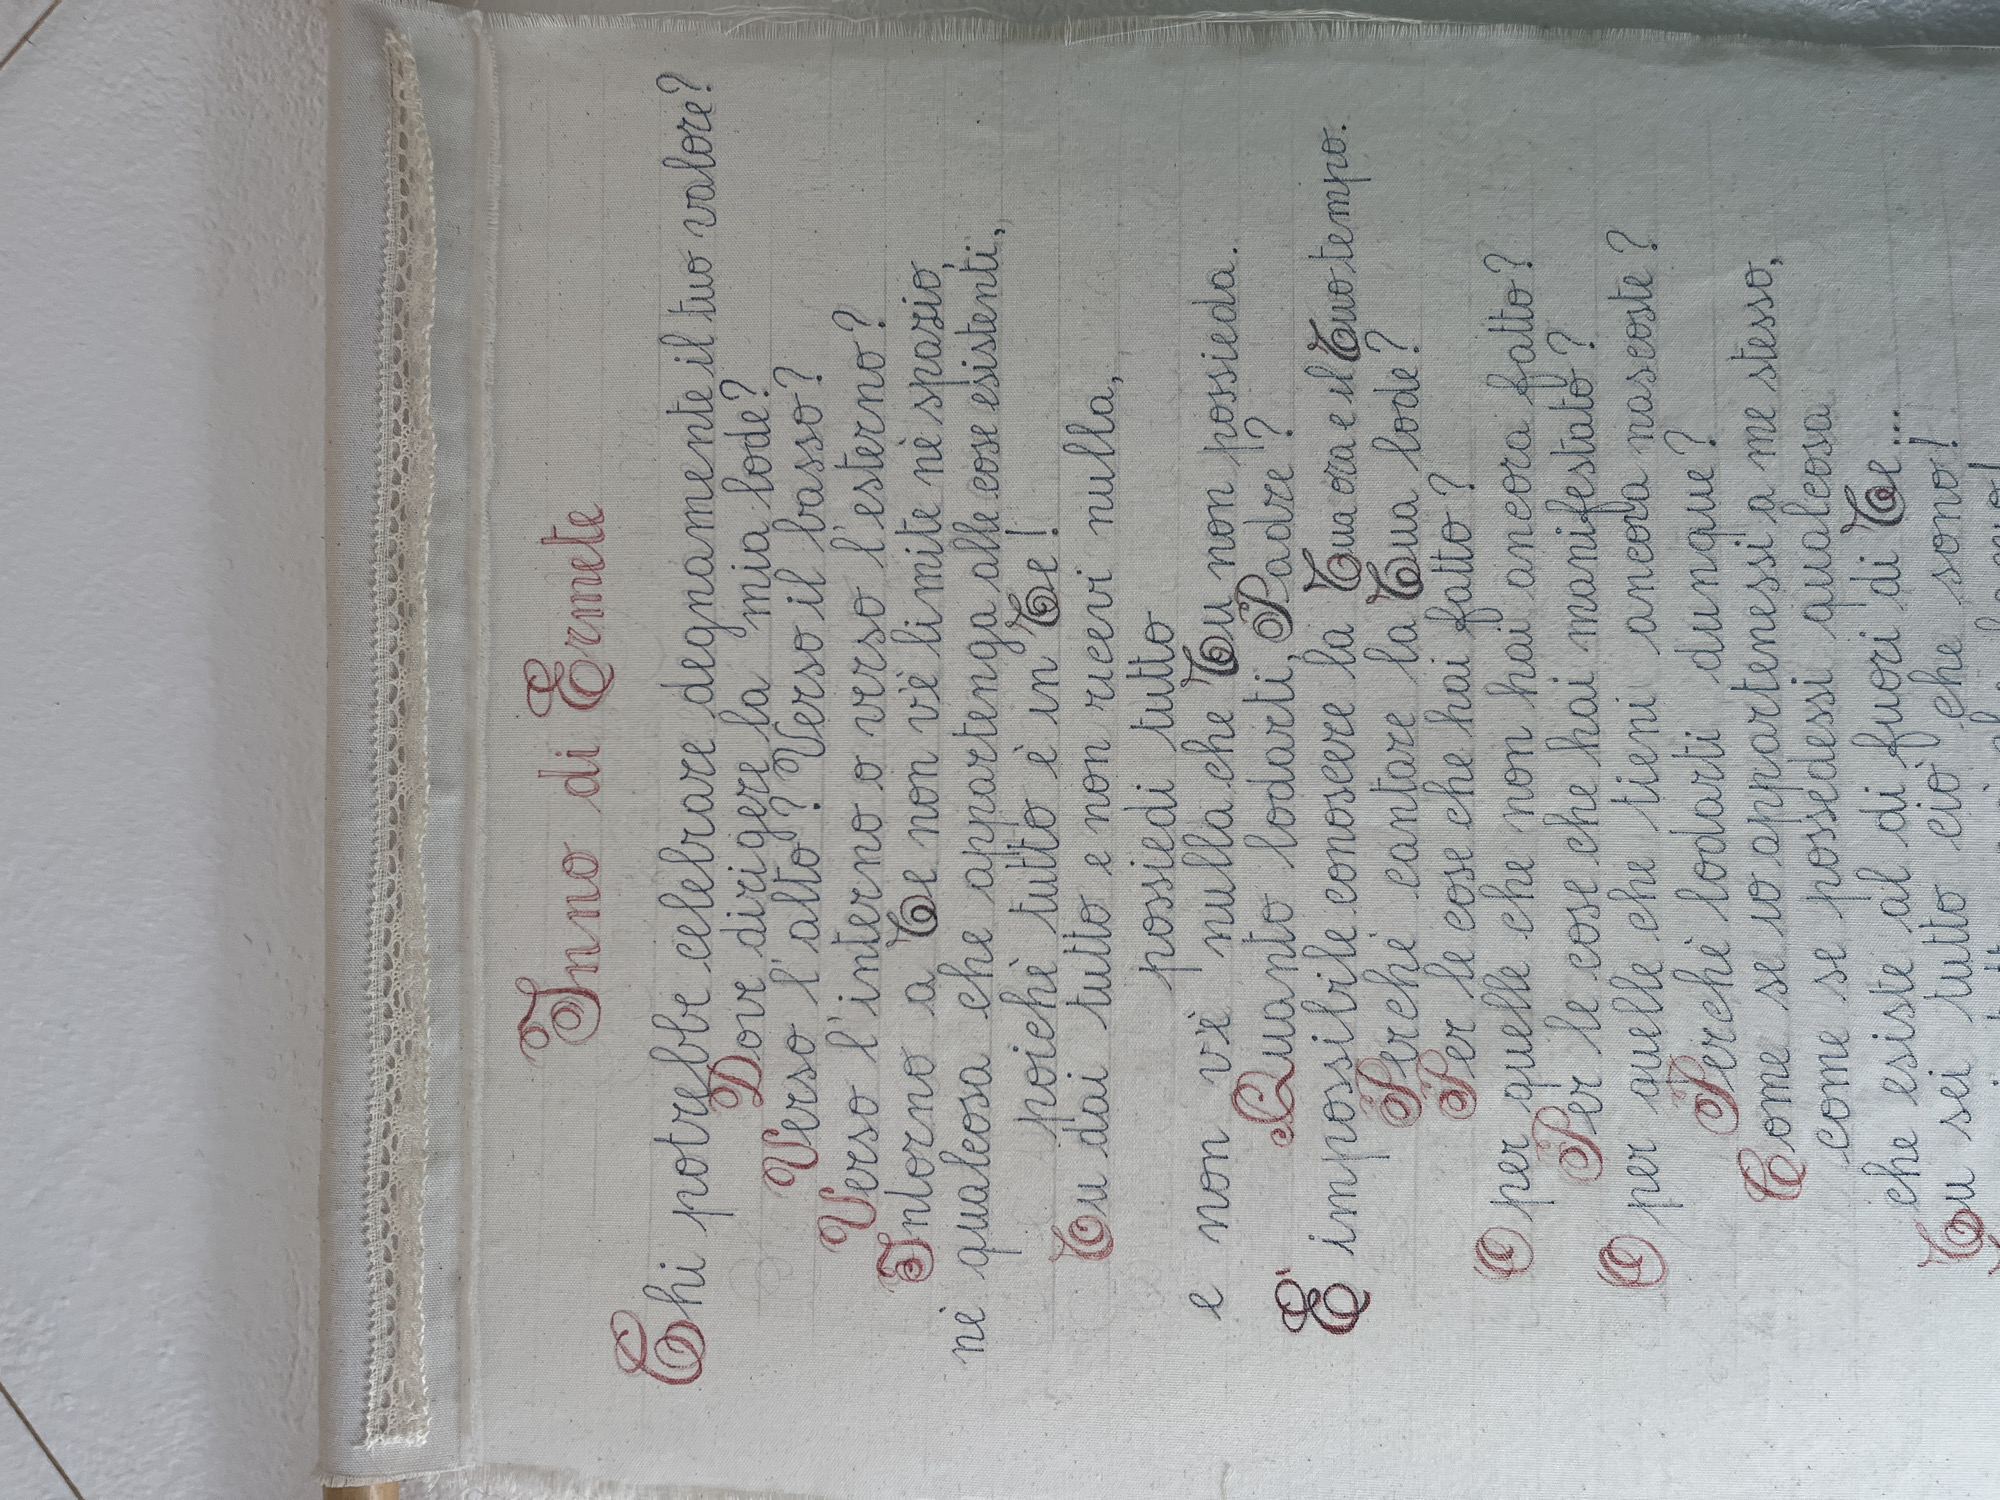 Inno di Ermete
Chi potrebbe celebrare degnamente il tuo valore?
Dove dirigere la mia lode?
Verso l'alto? Verso il basso?
Verso l'interno o verso l'esterno?
Intorno a Te non v'è limite nè spazio,
nè qualcosa che appartenga alle cose esistenti,
poichè tutto è in Te!
Tu dai tutto e non ricevi nulla,
possiedi tutto
e non v'è nulla che Tu non possieda.
Quanto lodarti, Padre?
È impossibile conoscere la Tua ora e il Tuo tempo.
Perchè cantare la Tua lode?
Per le cose che hai fatto?
O per quelle che non hai ancora fatto?
Per le cose che hai manifestato?
O per quelle che tieni ancora nascoste?
Perchè lodarti dunque?
Come se io appartenessi a me stesso,
come se possedessi qualcosa
che esiste al di fuori di Te...
Tu sei tutto ciò che sono!